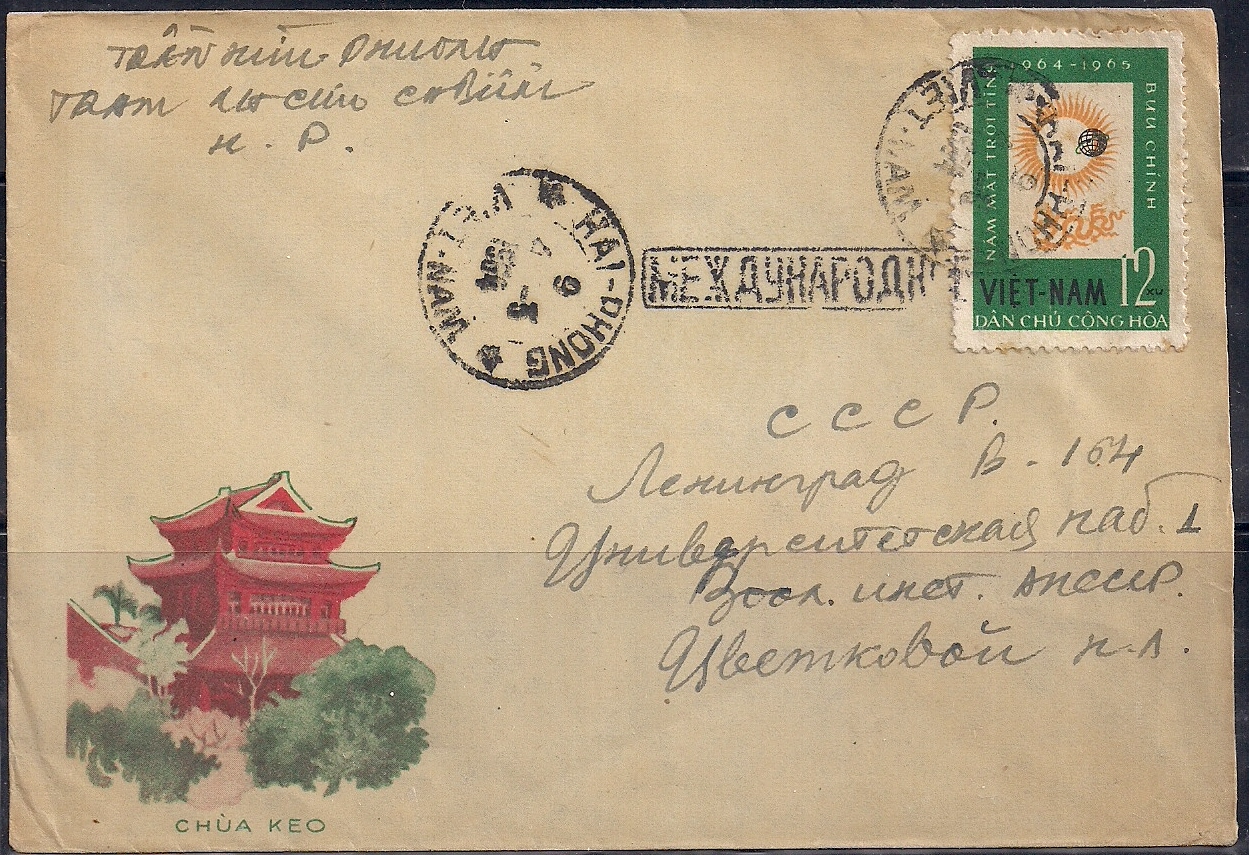 TRẦN HỮU PHƯƠNG
H. P.
1964-1965
NĂM MẶT TRỜI TĨNH
BƯU CHÍNH
12 XU
VIỆT-NAM
DÂN CHỦ CỘNG HÒA
HAI-PHONG
VIET-NAM
МЕЖДУНАРОДН
СССР.
Ленинград В-164
Университетская наб. 1
Зоол. инст. АНСССР.
Цветковой Н.Л.
CHÙA KEO